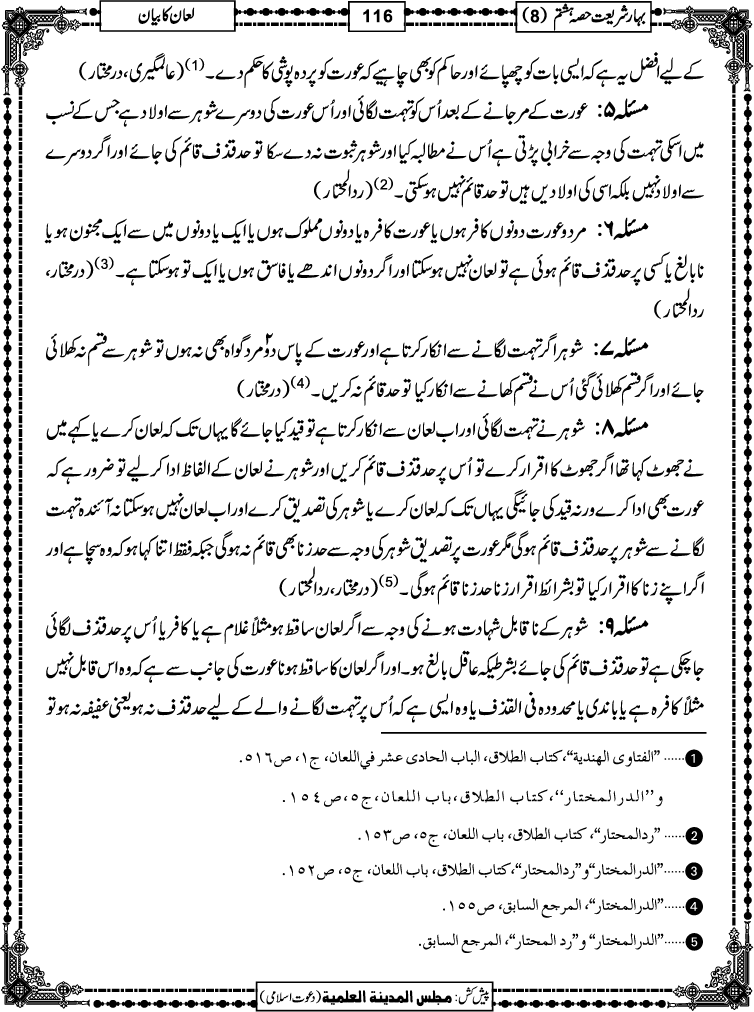 بہارِ شریعت حصہ ہشتم (8)
116
لعان کا بیان
کے لیے افضل یہ ہے کہ ایسی بات کو چھپائے اور حاکم کو بھی چاہیے کہ عورت کو پردہ پوشی کا حکم دے۔(1) (عالمگیری، درمختار)
مسئلہ ۵: عورت کے مرجانے کے بعد اُس کو تہمت لگائی اور اُس عورت کی دوسرے شوہر سے اولاد ہے جس کے نسب
میں اسکی تہمت کی وجہ سے خرابی پڑتی ہے اُس نے مطالبہ کیا اور شوہر ثبوت نہ دے سکا تو حد قذف قائم کی جائے اور اگر دوسرے
سے اولاد نہیں بلکہ اسی کی اولادیں ہیں تو حد قائم نہیں ہوسکتی۔(2) (ردالمحتار)
مسئلہ ۶: مرد و عورت دونوں کافر ہوں یا عورت کافرہ یا دونوں مملوک ہوں یا ایک یا دونوں میں سے ایک مجنون ہو یا
نابالغ یا کسی پر حد قذف قائم ہوئی ہے تو لعان نہیں ہوسکتا اور اگر دونوں اندھے یا فاسق ہوں یا ایک تو ہوسکتا ہے۔(3) (درمختار،
ردالمحتار)
مسئلہ ۷: شوہر اگر تہمت لگانے سے انکار کرتا ہے اور عورت کے پاس دو۲ مرد گواہ بھی نہ ہوں تو شوہر سے قسم نہ کھلائی
جائے اور اگر قسم کھلائی گئی اُس نے قسم کھانے سے انکار کیا تو حد قائم نہ کریں۔(4) (درمختار)
مسئلہ ۸: شوہر نے تہمت لگائی اور اب لعان سے انکار کرتا ہے تو قید کیا جائے گا یہاں تک کہ لعان کرے یا کہے میں
نے جھوٹ کہا تھا اگر جھوٹ کا اقرار کرے تو اُس پر حد قذف قائم کریں اور شوہر نے لعان کے الفاظ ادا کرلیے تو ضرور ہے کہ
عورت بھی ادا کرے ورنہ قید کی جائیگی یہاں تک کہ لعان کرے یا شوہر کی تصدیق کرے اور اب لعان نہیں ہوسکتا نہ آئندہ تہمت
لگانے سے شوہر پر حد قذف قائم ہوگی مگر عورت پر تصدیق شوہر کی وجہ سے حد زنا بھی قائم نہ ہوگی جبکہ فقط اتنا کہا ہو کہ وہ سچا ہے اور
اگر اپنے زنا کا اقرار کیا تو بشرائط اقرار زنا حد زنا قائم ہوگی۔(5) (درمختار، ردالمحتار)
مسئلہ ۹: شوہر کے ناقابل شہادت ہونے کی وجہ سے اگر لعان ساقط ہو مثلاً غلام ہے یا کافر یا اُس پر حد قذف لگائی
جاچکی ہے تو حد قذف قائم کی جائے بشرطیکہ عاقل بالغ ہو۔ اور اگر لعان کا ساقط ہونا عورت کی جانب سے ہے کہ وہ اس قابل نہیں
مثلاً کافرہ ہے یا باندی یا محدودہ فی القذف یا وہ ایسی ہے کہ اُس پر تہمت لگانے والے کے لیے حد قذف نہ ہو یعنی عفیفہ نہ ہو تو
1 ......"الفتاوى الهندية"، كتاب الطلاق، الباب الحادى عشر في اللعان، ج١، ص٥١٦.
و"الدرالمختار"، كتاب الطلاق، باب اللعان، ج٥، ص١٥٤.
2 ......"ردالمحتار"، كتاب الطلاق، باب اللعان، ج٥، ص١٥٣.
3 ......"الدرالمختار" و"ردالمحتار"، كتاب الطلاق، باب اللعان، ج٥، ص١٥٢.
4 ......"الدرالمختار"، المرجع السابق، ص١٥٥.
5 ......"الدرالمختار" و"رد المحتار"، المرجع السابق.
پیش کش: مجلس المدينة العلمية (دعوت اسلامی)